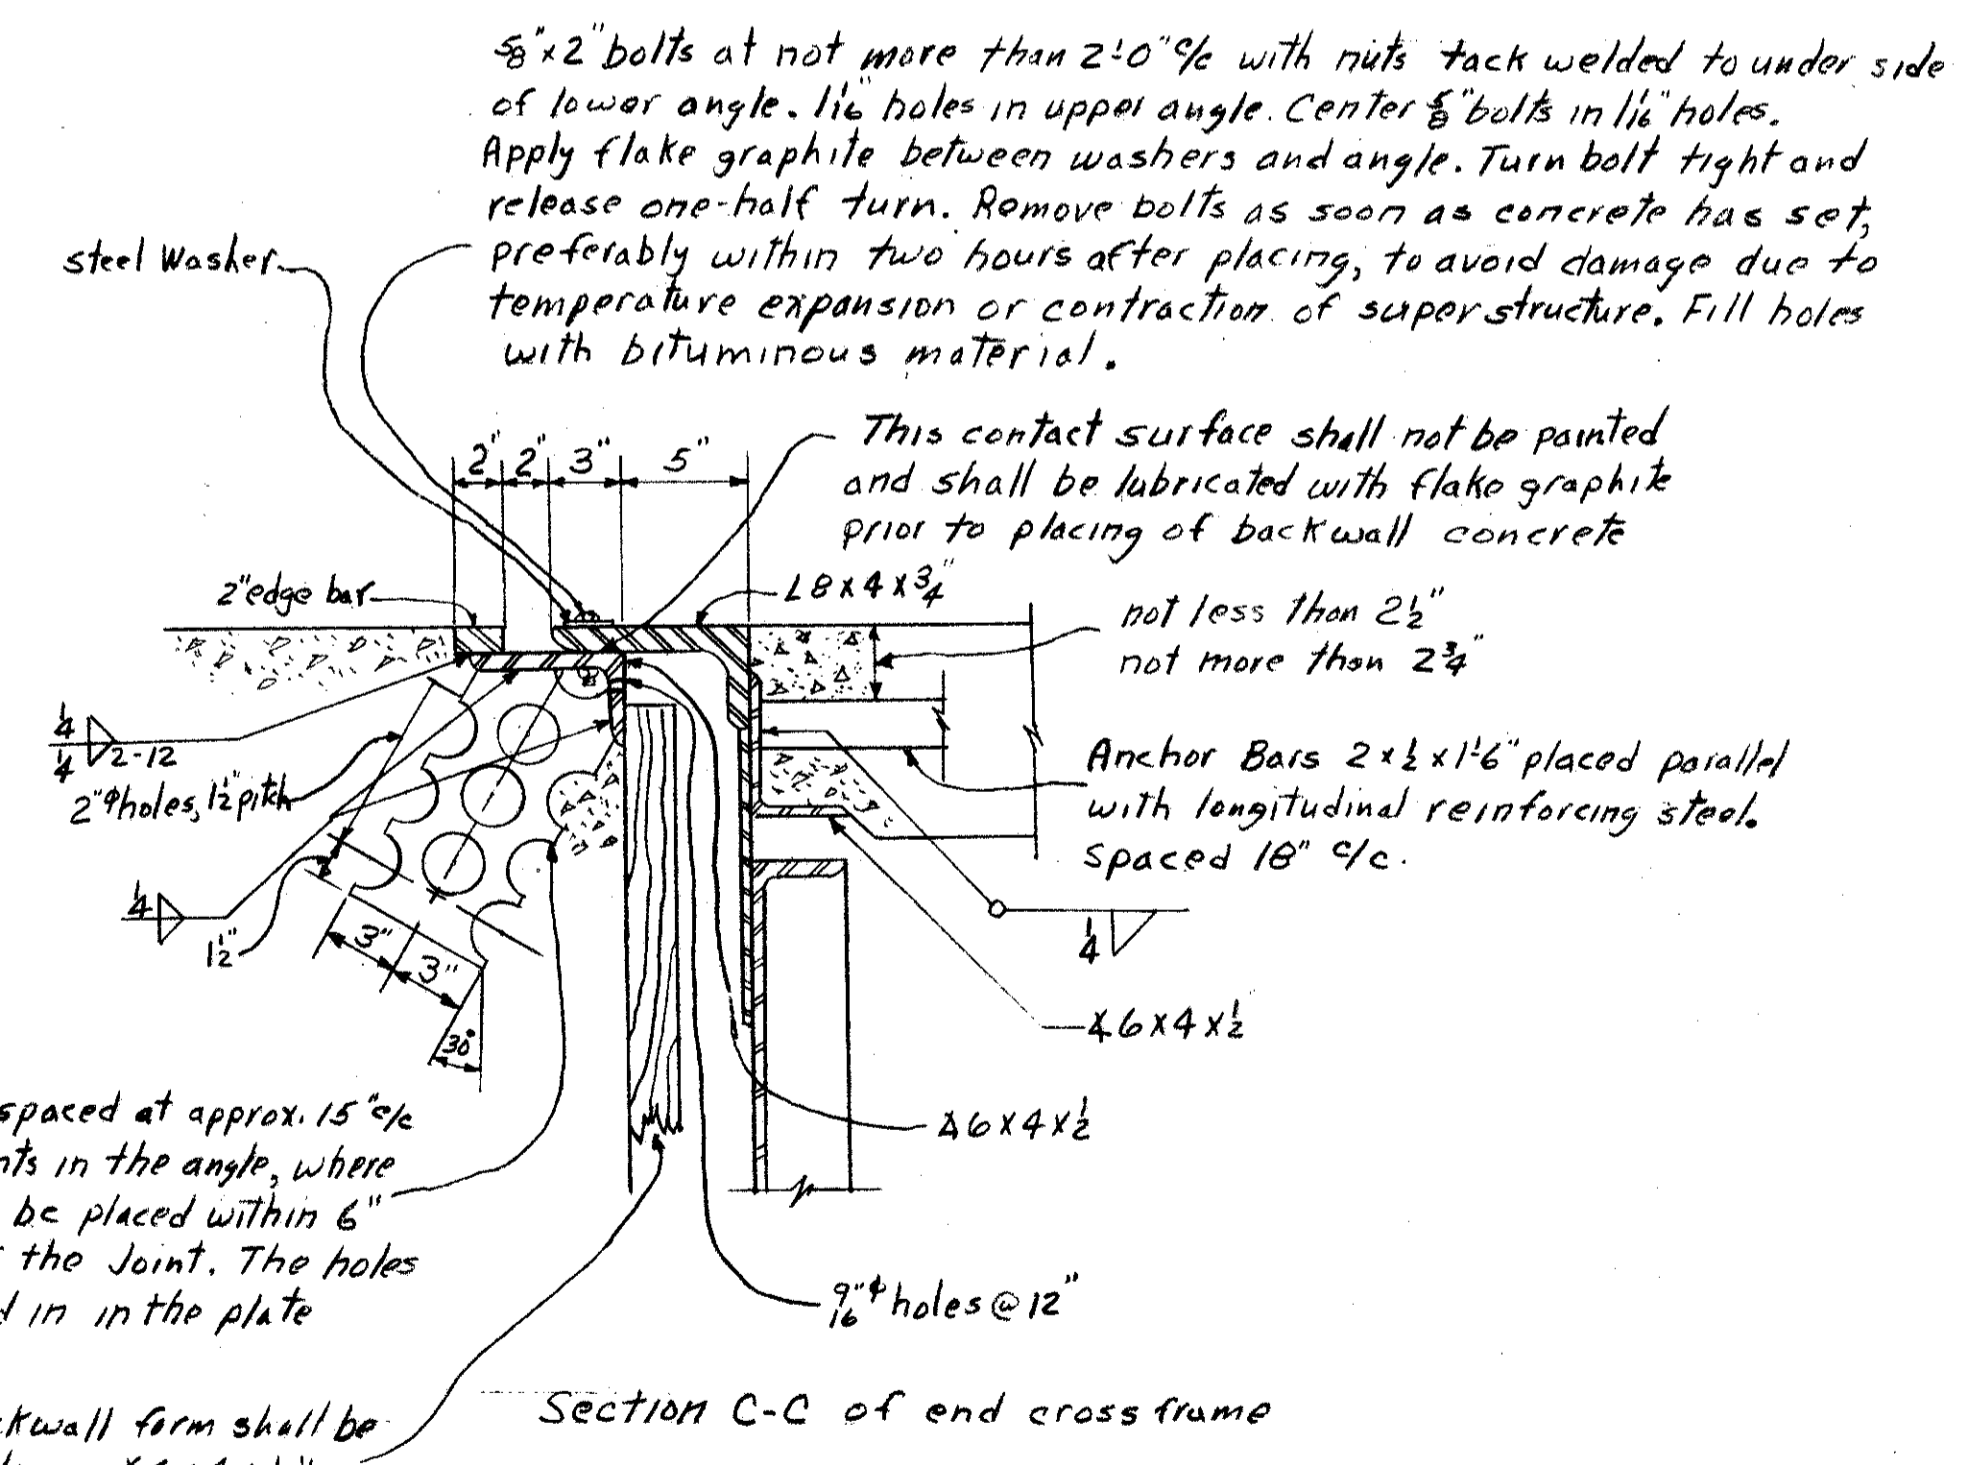 5/8" x 2" bolts at not more than 2'-0" c/c with nuts tack welded to under side
of lower angle. 1 1/16" holes in upper angle. Center 5/8" bolts in 1 1/16" holes.
Apply flake graphite between washers and angle. Turn bolt tight and
release one-half turn. Remove bolts as soon as concrete has set,
preferably within two hours after placing, to avoid damage due to
temperature expansion or contraction of superstructure. Fill holes
with bituminous material.
steel Washer
This contact surface shall not be painted
and shall be lubricated with flake graphite
prior to placing of backwall concrete
2" 2" 3" 5"
2" edge bar
L 8 x 4 x 3/4"
not less than 2 1/2"
not more than 2 3/4"
1/4
1/4 2-12
2" φ holes, 1 1/2" pitch
Anchor Bars 2 x 1/2 x 1'-6" placed parallel
with longitudinal reinforcing steel.
Spaced 18" c/c.
1/4
1 1/2"
3"
3"
30°
1/4
∠ 6 x 4 x 1/2
∠ 6 x 4 x 1/2
spaced at approx. 15" c/c
nts in the angle, where
be placed within 6"
the Joint. The holes
d in in the plate
9/16" φ holes @ 12"
Section C-C of end cross frame
ckwall form shall be